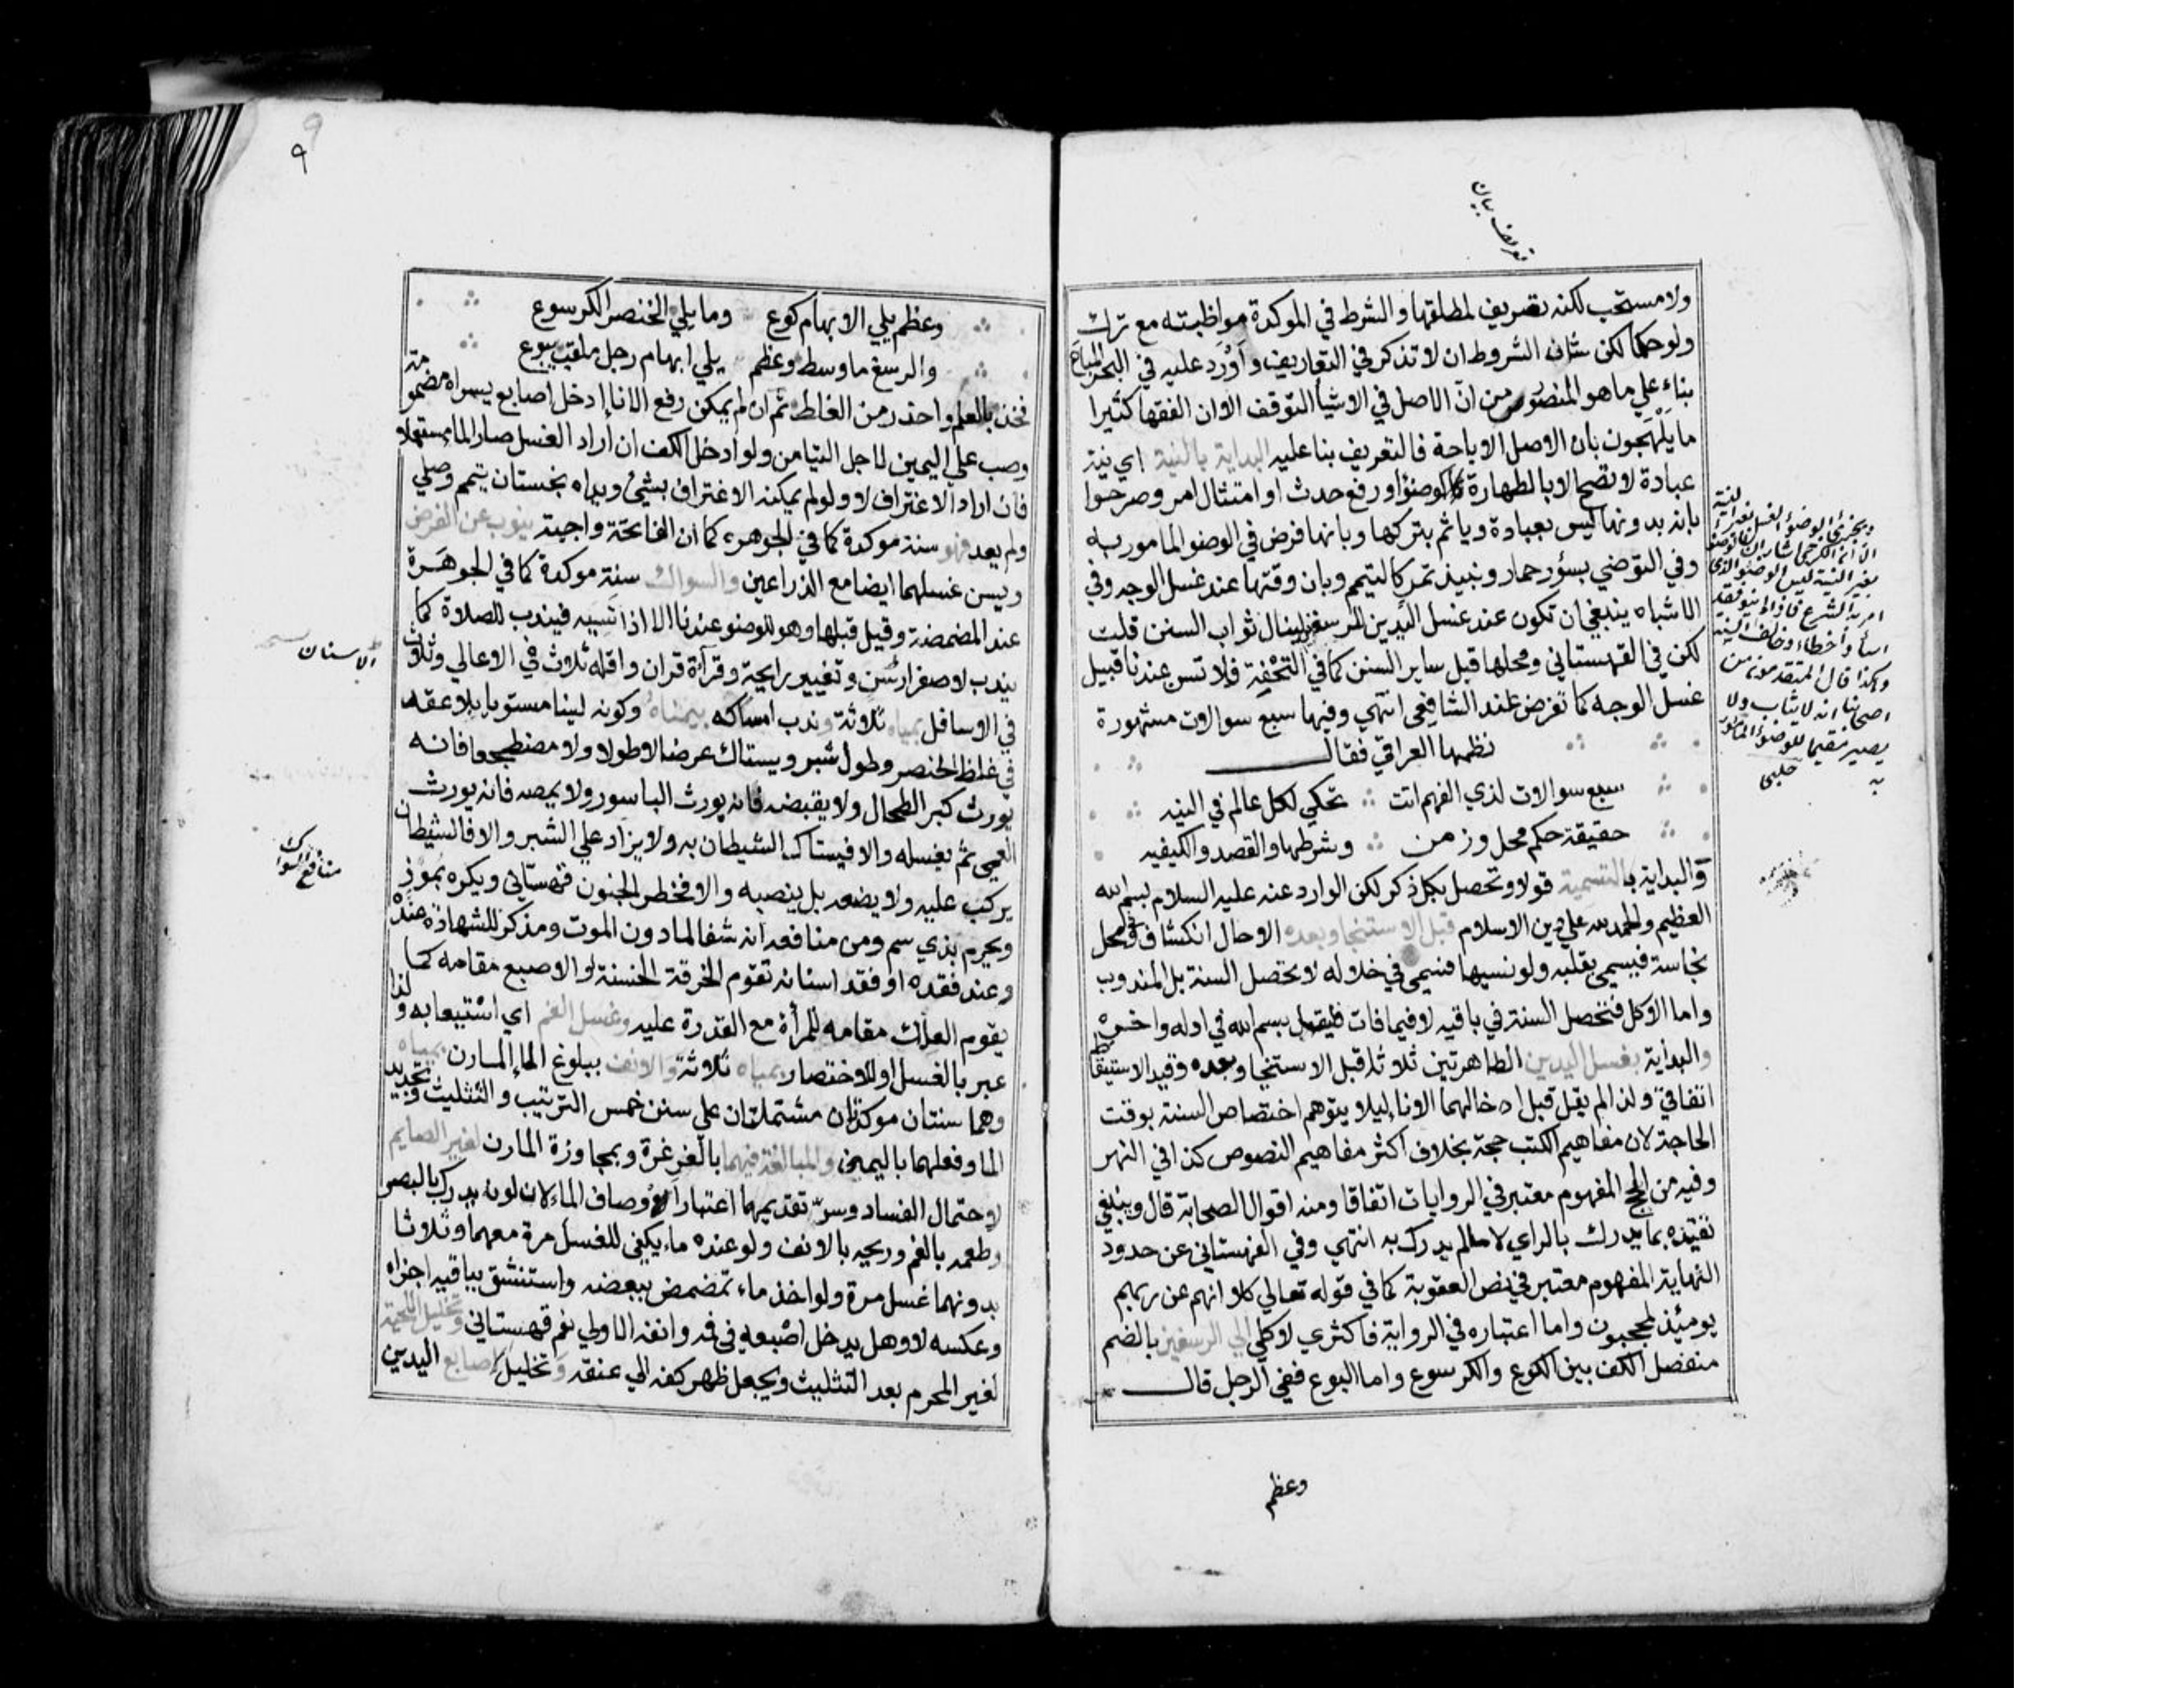 تعريف بيان
ولا مستحب لكنه تعريف لمطلقها والشرط في الموكدة مواظبته مع ترك
ولو حكما لكن شان الشروط ان لا تذكر في التعاريف واَوْرَد عليه في البحر المباح
بناء علي ما هو المنصور من انّ الاصل في الاشيا التوقف الا ان الفقها كثيرا
ما يَلْهَجون بان الاصل الاباحة فالتعريف بنا عليه البداية بالنية اي نية
عبادة لا تصح الا بالطهارة كالوضوٓ او رفع حدث او امتثال امر وصرحوا
بانه بدونها ليس بعبادة وياثم بتركها وبانها فرض في الوضو المامور به
وفي التوضي بسؤر حمار ونبيذ تمر كالتيمم وبان وقتها عند غسل الوجه وفي
الاشباه ينبغي ان تكون عند غسل اليدين للرسغين لينال ثواب السنن قلت
لكن في القهستاني ومحلها قبل ساير السنن كما في التحْفة فلا تسن عندنا قبيل
غسل الوجه كما تفرض عند الشافعي انتهي وفيها سبع سوالات مشهورة
نظمها العراقي فقال
سبع سوالات لذي الفهم اتت تحكي لكل عالم في النيه
حقيقة حكم محل وزمن وشرطها والقصد والكيفيه
والبداية بالتسمية قولا وتحصل بكل ذكر لكن الوارد عنه عليه السلام بسم الله
العظيم والحمد لله علي دين الاسلام قبل الاستنجا وبعده الا حال انكشاف وفي محل
نجاسة فيسمي بقلبه ولو نسيها فسمي في خلاله لا تحصل السنة بل المندوب
واما الاكل فتحصل السنة في باقيه لا فيما فات فليقل بسم الله في اوله واخره
والبداية بغسل اليدين الطاهرتين ثلاثا قبل الاستنجا وبعده وقيد الاستيقاظ
اتفاقي ولذا لم يقل قبل ادخالهما الانا ليلا يتوهم اختصاص السنة بوقت
الحاجة لان مفاهيم الكتب حجة بخلاف اكثر مفاهيم النصوص كذا في النهر
وفيه من الحج المفهوم معتبر في الروايات اتفاقا ومنه اقوال الصحابة قال وينبغي
تقييده بما يدرك بالراي لا ما لم يدرك به انتهي وفي القهستاني عن حدود
النهاية المفهوم معتبر في نص العقوبة كما في قوله تعالي كلا انهم عن ربهم
يومئذ لمحجبون واما اعتباره في الرواية فاكثري لا كلي الي الرسغين بالضم
منفصل الكف بين الكوع والكرسوع واما البوع ففي الرجل قال
وعظم
ويجزئ الوضوٓ والغسل بغير النية
الا انه الكرخي اشار ان الوضوٓ
بغير النية ليس الوضوٓ الذي
امر به الشرع فاذا لم ينو فقد
اسأ واخطاء وخالف السنة
وكذا قال المتقدمون من
اصحابنا انه لا يثاب ولا
يصير مقيما للوضوٓ المامور
به حلبي
٩
وعظم يلي الابهام كوع وما يلي لخنصر الكرسوع
والرسغ ما وسط وعظم يلي ابهام رجل ملقب ببوع
فخذ بالعلم واحذر من الغلط ثم ان لم يمكن رفع الانا ادخل اصابع يسراه مضمومة
وصب علي اليمين لاجل التيامن ولو ادخل الكف ان اراد الغسل صار الما مستعملا
فان اراد الاغتراف لا ولو لم يمكنه الاغتراف بشئ ويداه نجستان يتمم وصلي
ولم يعد فهو سنة موكدة كما في الجوهرة كما ان الفاتحة واجبة ينوب عن الفرض
ويسن غسلهما ايضا مع الذراعين والسواك سنة موكدة كما في الجوهرة
عند المضمضة وقيل قبلها وهو للوضوٓ عندنا الا اذا نسيه فيندب للصلاة كما
يندب لاصفرار سن وتغيير رايحة وقرآة قران واقله ثلاث في الاعالي وثلاث
في الاسافل بمياه ثلاثة وندب امساكه بيمناه وكونه لينا مستويا بلا عقد
في غلظ الخنصر وطول شبر ويستاك عرضا لا طولا ولا مضطجعا فانه
يورث كبر الطحال ولا يقبضه فانه يورث الباسور ولا يمصه فانه يورث
العمي ثم يغسله والا فيستاك الشيطان به ولا يزاد علي الشبر والا فالشيطان
يركب عليه ولا يضعه بل ينصبه والا فخطر الجنون قهستاني ويكره بموذ
ويحرم بذي سم ومن منافعه انه شفا لما دون الموت ومذكر للشهادة عنده
وعند فقده او فقد اسنانه تقوم الخرقة الخشنة او الاصبع مقامه كما
يقوم العلك مقامه للمرأة مع القدرة عليه وغسل الفم اي استيعابه ولذا
عبر بالغسل او للاختصار بمياه ثلاثة والانف ببلوغ الما المارن بمياه
وهما سنتان موكدتان مشتملتان علي سنن خمس الترتيب والتثليث وتجديد
الما وفعلهما باليمين والمبالغة فيهما بالغرغرة وبمجاوزة المارن لغير الصايم
لاحتمال الفساد وسرّ تقديمهما اعتبار اوصاف الماء لان لونه يدرك بالبصر
وطعمه بالفم وريحه بالانف ولو عنده ماء يكفي للغسل مرة معهما وثلاثا
بدونهما غسل مرة ولو اخذ ماء تمضمض ببعضه واستنشق بباقيه اجزاه
وعكسه لا وهل يدخل اصبعه في فمه وانفه الاولي نعم قهستاني وتخليل اللحية
لغير المحرم بعد التثليث ويجعل ظهر كفه الي عنقه وتخليل اصابع اليدين
الاسنان
منافع السواك